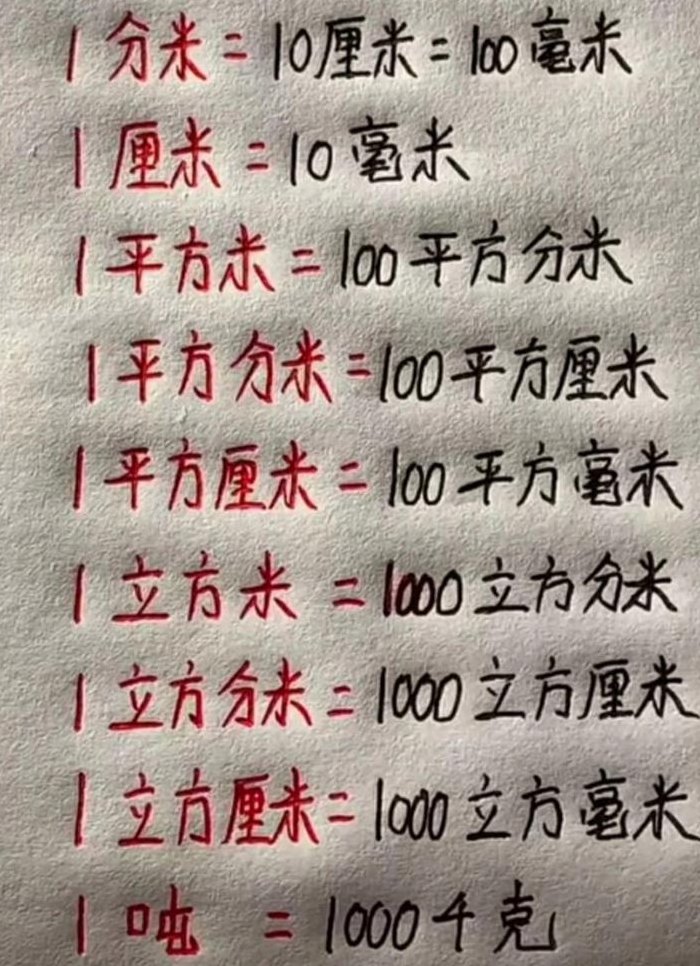 1分米=10厘米=100毫米
1厘米=10毫米
1平方米=100平方分米
1平方分米=100平方厘米
1平方厘米=100平方毫米
1立方米=1000立方分米
1立方分米=1000立方厘米
1立方厘米=1000立方毫米
1吨=1000千克